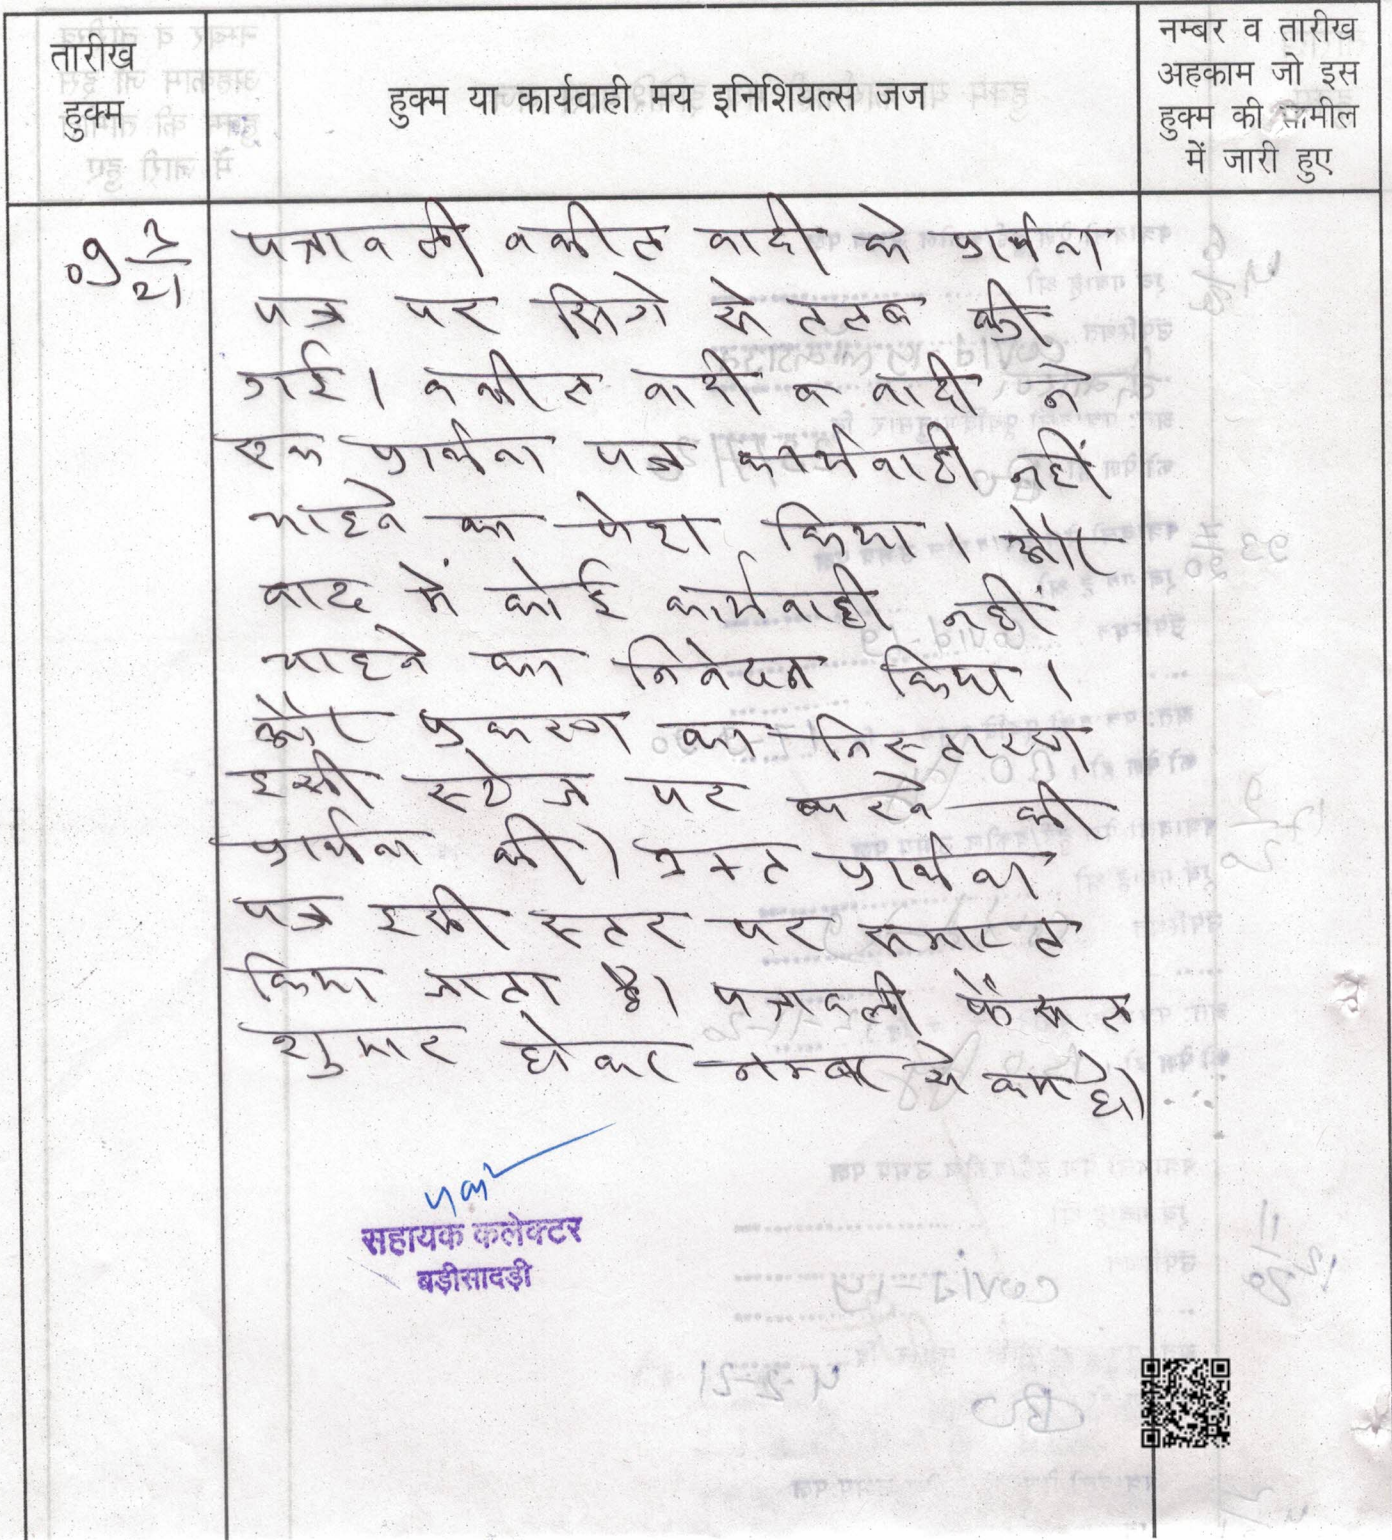 तारीख
हुक्म
हुक्म या कार्यवाही मय इनिशियल्स जज
नम्बर व तारीख
अहकाम जो इस
हुक्म की तामील
में जारी हुए
09 2/21
पत्रावली वकील वादी के प्रार्थना
पत्र पर सिगे से तलब की
गई। वकील वादी व वादी ने
एक प्रार्थना पत्र कार्यवाही नहीं
चाहने का पेश किया। और
वाद में कोई कार्यवाही नहीं
चाहने का निवेदन किया।
और प्रकरण का निस्तारण
इसी स्टेज पर करने की
प्रार्थना की। उक्त प्रार्थना
पत्र इसी स्तर पर समाप्त
किया जाता है। पत्रावली फैसल
शुमार होकर नम्बर से कम हो।
सहायक कलेक्टर
बड़ीसादड़ी